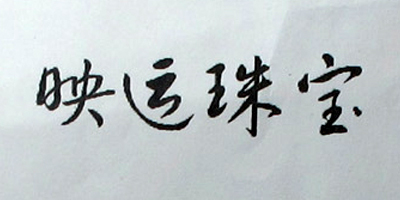 映运珠宝